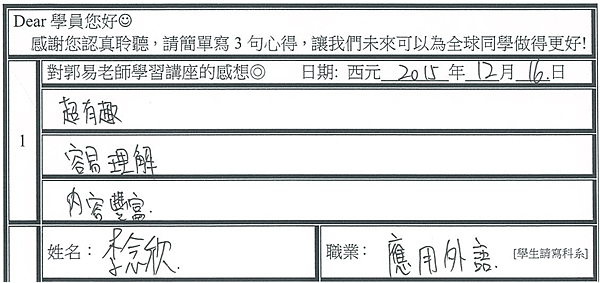 Dear 學員您好☺
感謝您認真聆聽，請簡單寫 3 句心得，讓我們未來可以為全球同學做得更好!
對郭易老師學習講座的感想◎ 日期: 西元 2015 年 12 月 16 日
1
超有趣
容易理解
內容豐富.
姓名： 李念欣. 職業： 應用外語. [學生請寫科系]